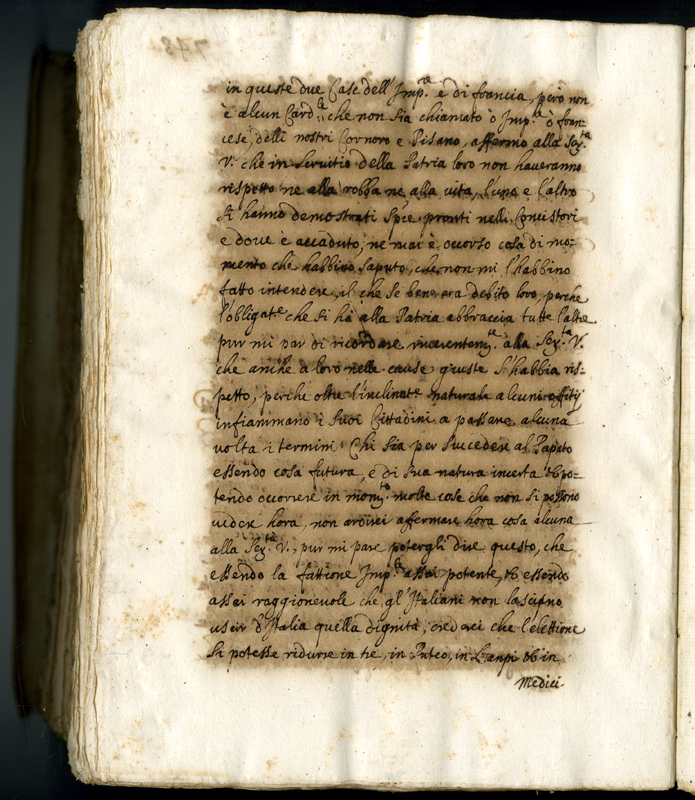 in queste due Case dell'Imp.re e di francia, però non
è alcun Card.le che non sia chiamato ò Imp.le ò fran-
cese, delli nostri Cornoro e Pisano, affermo alla Ser.tà
V.: che in servitio della Patria loro non haveranno
rispetto ne alla robba ne alla vita, l'uno e l'altro
si hanno demostrati pronti nelli Concistori
e dove è accaduto; ne mai è occorso cosa di mo-
mento che habbino saputo, che non mi l'habbino
fatto intendere, il che se bene era debito loro, perche
l'obligat.e che si hà alla Patria abbraccia tutte l'altre
pur mi par di ricordare reverentem.te alla Ser.tà V.
che anche a loro nelle cause giuste s'habbia ris-
petto; perche oltre l'inclinat.e naturale alcuni offitij
infiammano i suoi Cittadini a passare alcuna
volta i termini. Chi sia per succedere al Papato
essendo cosa futura, e di sua natura incerta et po-
tendo occorrere in mom.to molte cose che non si possono
vedere hora, non ardirei affermare hora cosa alcuna
alla Ser.tà V., pur mi pare potergli dire questo, che
essendo la fattione Imp.le assai potente, et essendo
assai raggionevole che gl'Italiani non lascino
uscir d'Italia quella dignità, crederei che l'elettione
si potesse ridurre in tre, in Puteo, in Carpi et in
Medici